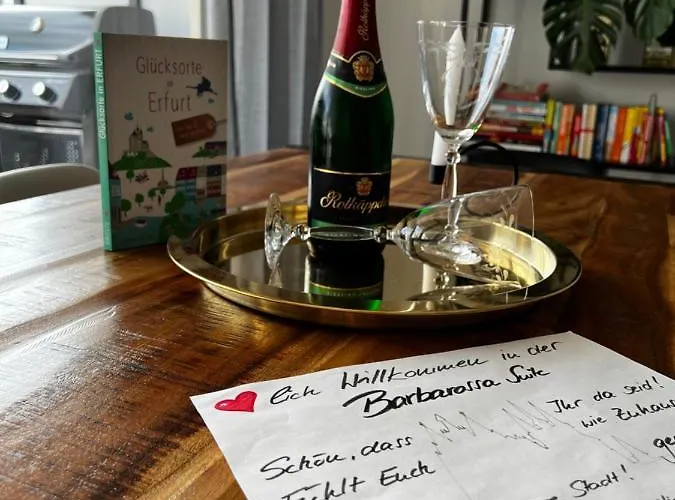 Glücksorte in ERFURT
Glücksorte
in
Erfurt
Rotkäppchen
RIESLING
Rotkäppch
♥ Eich Willkommen in der
Barbarossa Suite
Schön, dass Ihr da seid!
Fühlt Euch wie Zuhaus
Stadt!